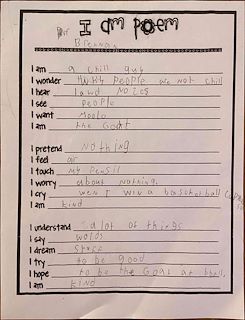 I am poem
By Brennan
I am a chill guy
I wonder why people are not chill
I hear lawd nozes
I see people
I want
I am the Goat
I pretend nothing
I feel air
I touch my pensil
I worry about nothing
I cry wen I win a basketball
I am kind
I understand a lot of things
I say words
I dream
I try to be good
I hope to be the Goat at
I am kind